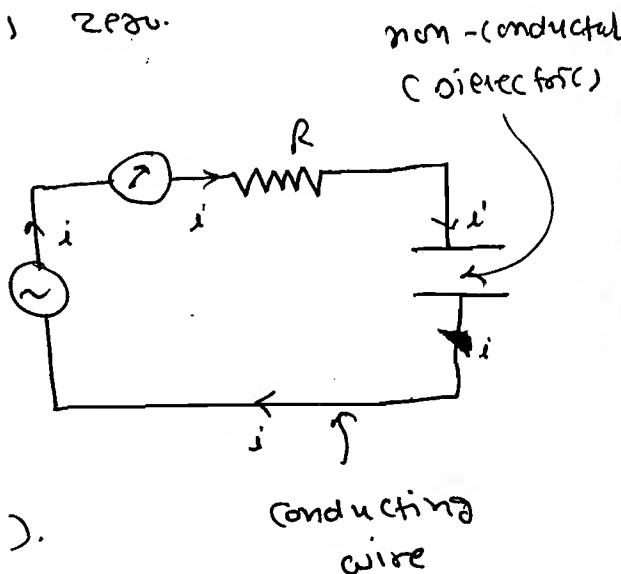 ) zero.
non-conductal
(Dielectric)
R
i
i
i
i
i
conducting
wire
).